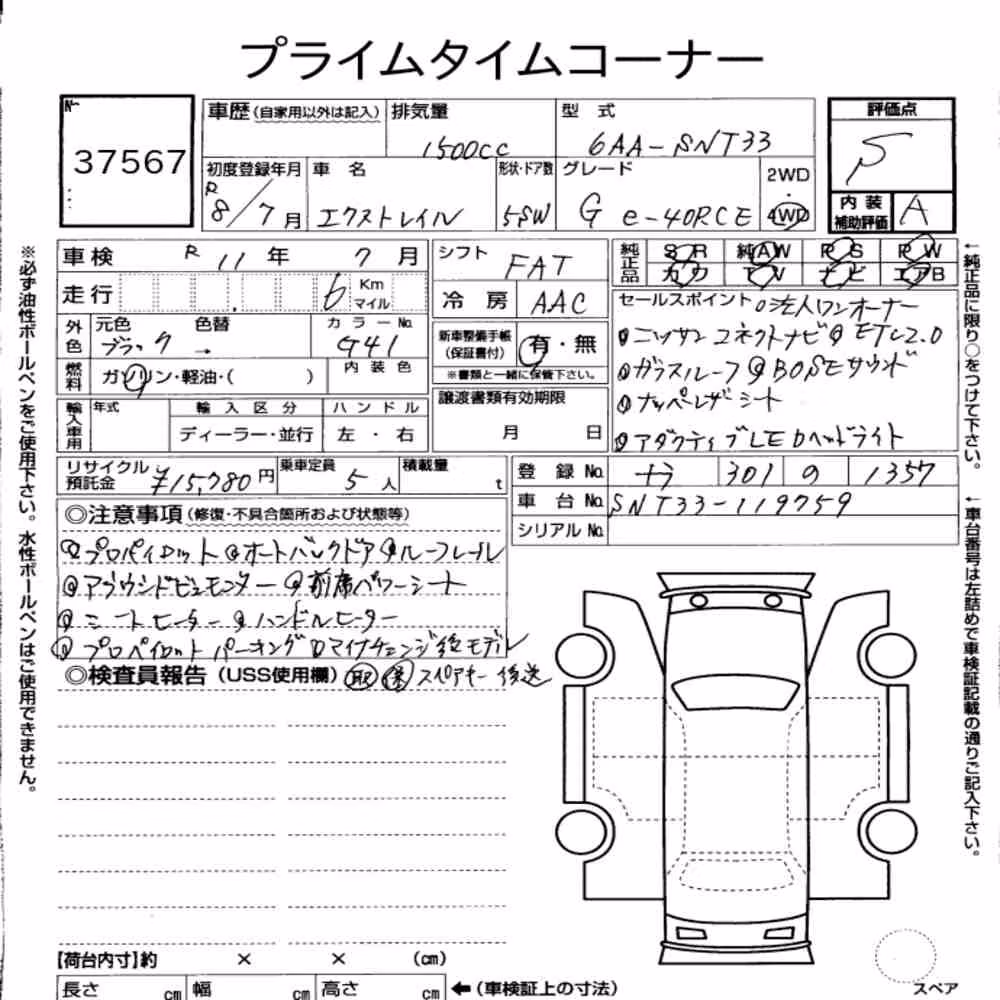 プライムタイムコーナー
No
37567
車歴(自家用以外は記入) 排気量 1500cc 型式 6AA-SNT33
評価点 S
初度登録年月 R 8/7月 車名 エクストレイル 形状・ドア数 5SW グレード G e-4ORCE 2WD・4WD
内装補助評価 A
車検 R 11年 7月
走行 6 Km マイル
外色 元色 ブラック 色替 → カラーNo. G41
燃料 ガソリン・軽油・( ) 内装色
輸入車用 年式 輸入区分 ディーラー・並行 ハンドル 左・右
シフト FAT
冷房 AAC
新車整備手帳(保証書付) 有・無
※書類と一緒に保管下さい。
譲渡書類有効期限
月 日
純正品 SR 純AW PS PW
カワ TV ナビ エアB
セールスポイント ○法人ワンオーナー
◎ニッサンコネクトナビ ◎ETC2.0
◎ガラスルーフ ◎BOSEサウンド
◎ナッパレザーシート
◎アダクティブLEDヘッドライト
リサイクル預託金 ¥15,780円 乗車定員 5人 積載量 t
登録No. ナラ 301 の 1357
車台No. SNT33-119759
シリアルNo.
◎注意事項(修復・不具合箇所および状態等)
◎プロパイロット ◎オートバックドア ◎ルーフレール
◎アラウンドビューモニター ◎前席パワーシート
◎シートヒーター ◎ハンドルヒーター
◎プロパイロットパーキング ◎マイナチェンジ後モデル
◎検査員報告(USS使用欄) 取 保 スペアキー後送
【荷台内寸】約 × × (cm)
長さ cm 幅 cm 高さ cm ←(車検証上の寸法)
スペア
※必ず油性ボールペンをご使用下さい。水性ボールペンはご使用できません。
←純正品に限り○をつけて下さい。
←車台番号は左詰めで車検証記載の通りご記入下さい。